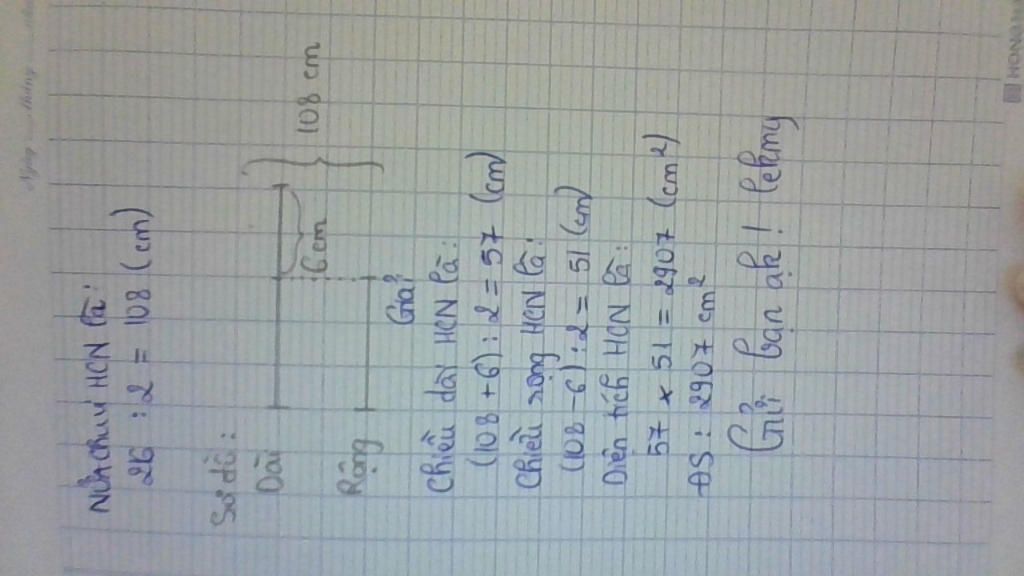 Nửa chu vi HCN là:
26 : 2 = 108 (cm)
Sơ đồ:
Dài
6cm
108 cm
Rộng
Giải
Chiều dài HCN là:
(108 + 6) : 2 = 57 (cm)
Chiều rộng HCN là:
(108 - 6) : 2 = 51 (cm)
Diện tích HCN là:
57 x 51 = 2907 (cm²)
ĐS : 2907 cm²
Gửi bạn ạk! lekmy